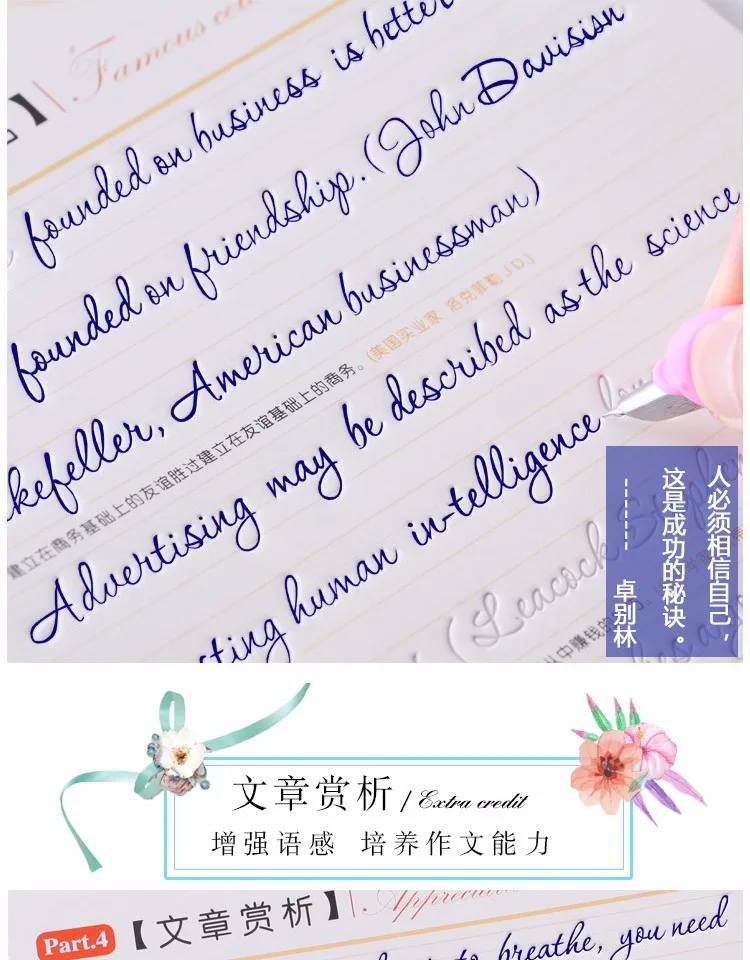 】 Famous
founded on business is better
founded on friendship. (John Davision
kefeller, American businessman)
建立在商务基础上的友谊胜过建立在友谊基础上的商务。(美国实业家 洛克菲勒 J D.)
Advertising may be described as the science
sting human in-telligence
(Leacock Stephen
从中赚钱的
人必须相信自己,
这是成功的秘诀。
------- 卓别林
文章赏析 / Extra credit
增强语感 培养作文能力
Part.4 【文章赏析】 Appreciation
to breathe, you need